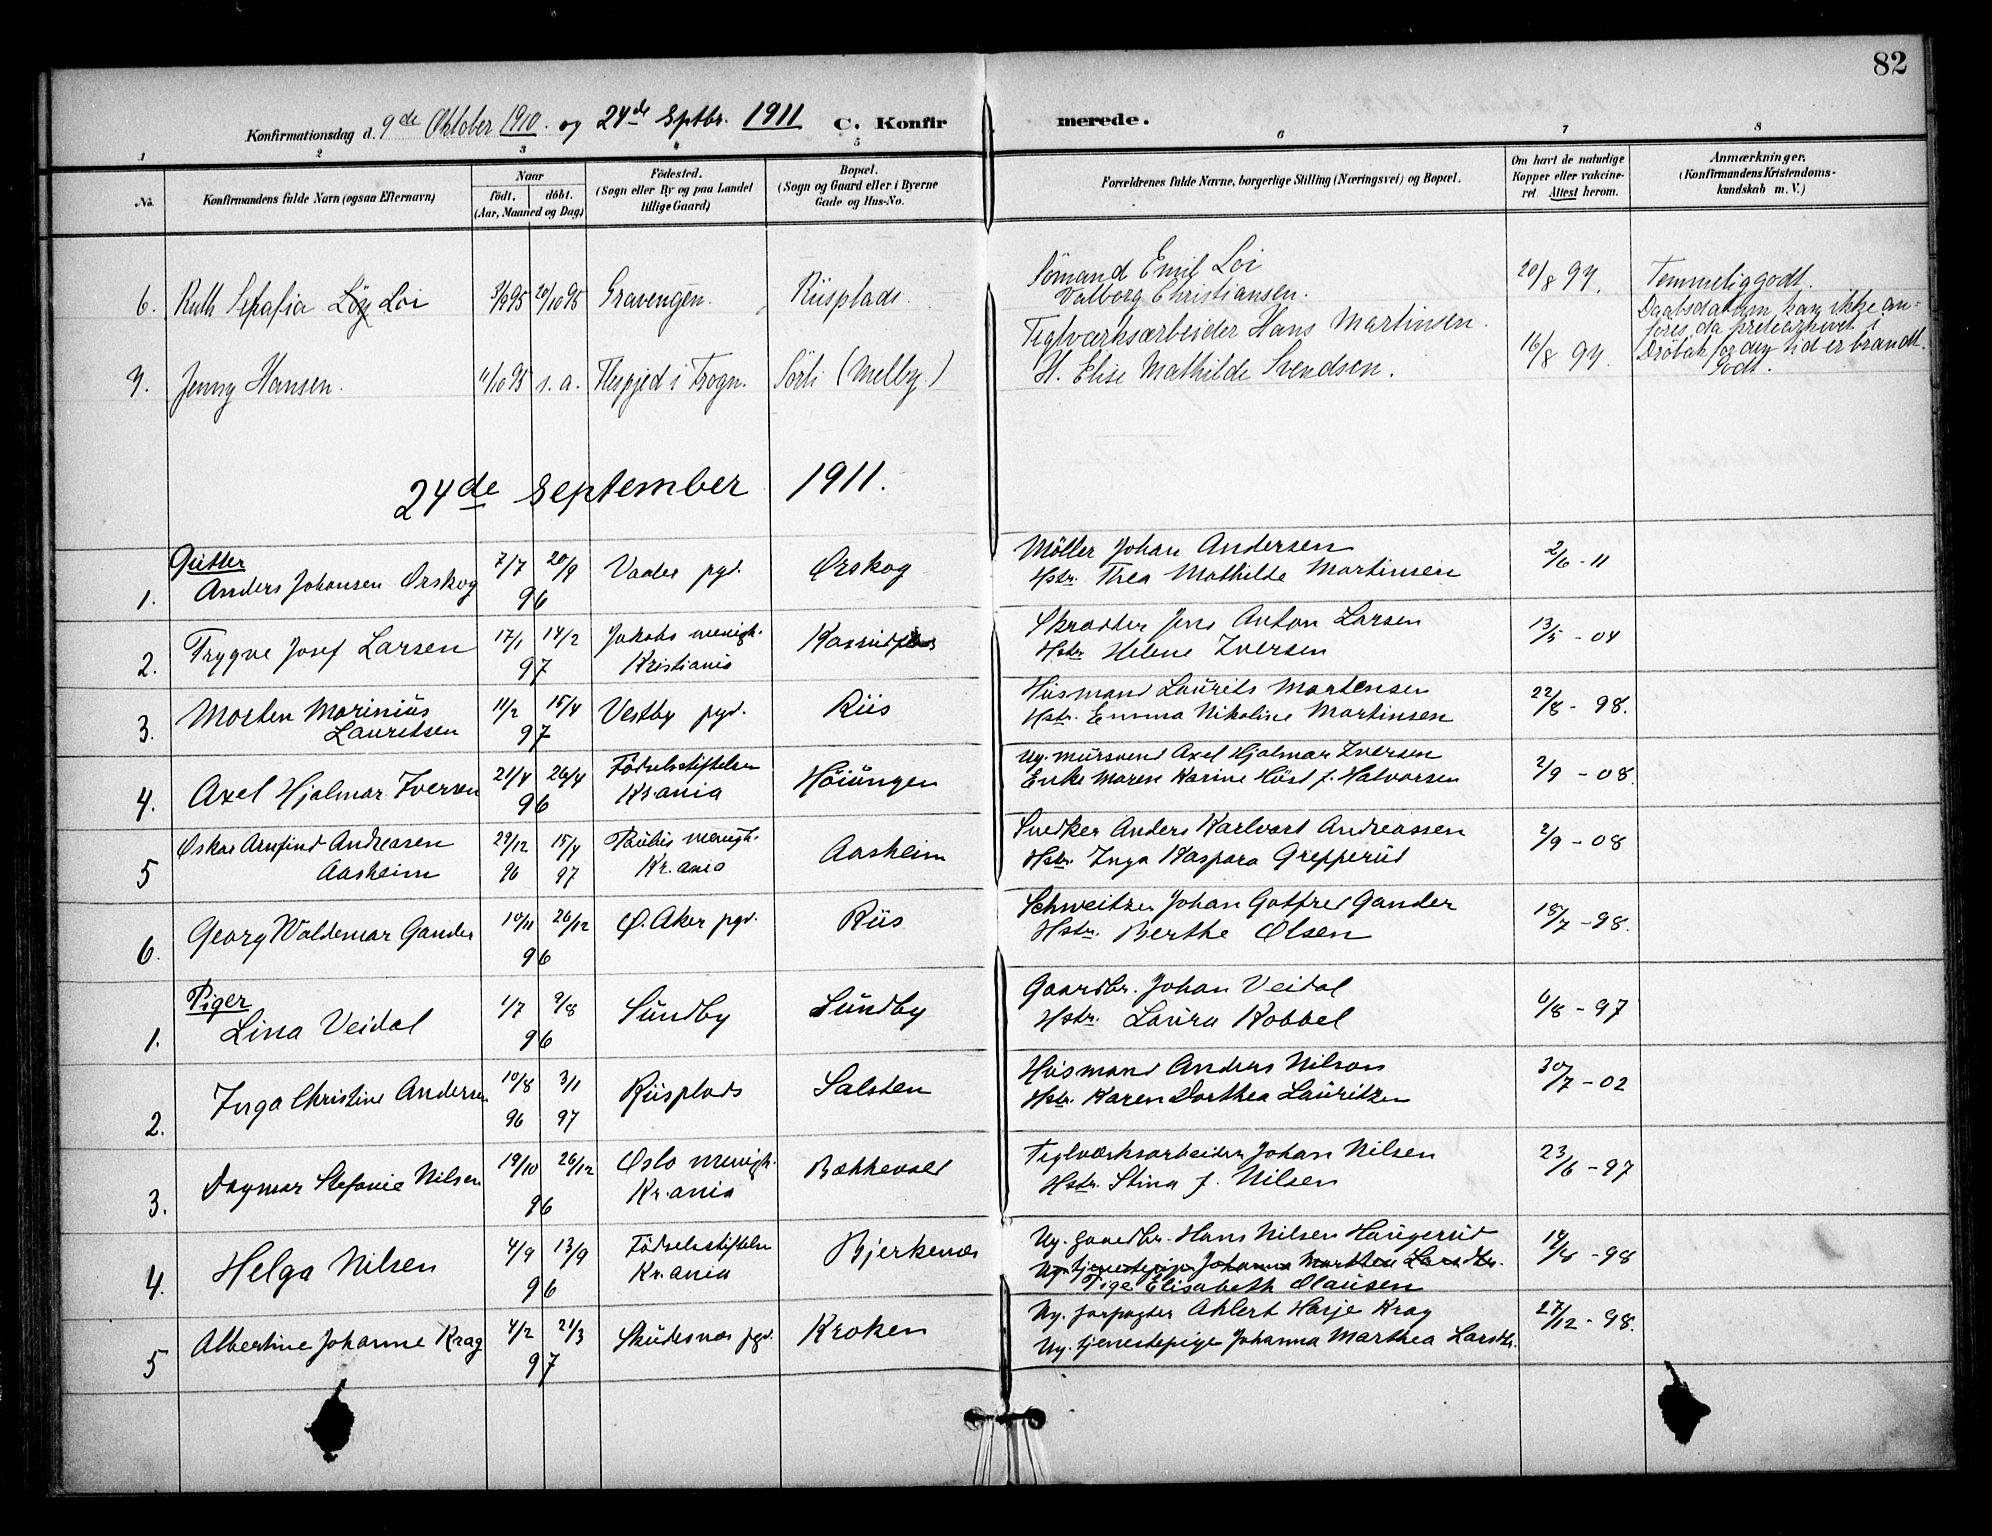 82
Konfirmationsdag d. 9de Oktober 1910. og 24de Septbr. 1911 C. Konfirmerede.
1 2 3 4 5 6 7 8
No.
Konfirmandens fulde Navn (ogsaa Efternavn)
Naar
født. døbt.
(Aar, Maaned og Dag)
Fødested.
(Sogn eller By og paa Landet
tillige Gaard)
Bopæl.
(Sogn og Gaard eller i Byerne
Gade og Hus-No.
Forældrenes fulde Navne, borgerlige Stilling (Næringsvei) og Bopæl.
Om havt de naturlige
Kopper eller vakcine-
ret. Attest herom.
Anmærkninger.
(Konfirmandens Kristendoms-
kundskab m. V.)
6. Ruth Serafia Løy Loi 3/9 95 20/10 95 Gravengen. Riisplads.
Sømand Emil Loi
Valborg Christiansen.
20/8 97. Temmelig godt.
7. Jenny Hansen. 11/10 95 s. a. i Trogn. Sørli (Melby)
Teglværksarbeider Hans Martinsen.
H. Elise Mathilde Svendsen.
16/8 97.
Daabsdatum kan ikke an-
føres, da prestearkivet i
Drøbak for den tid er brændt.
Godt.
24de September 1911.
Gutter
1. Anders Johansen Ørskog 7/7 20/9 96 Vaaler pgd. Ørskog
Møller Johan Andersen
Hstr. Thea Mathilde Martinsen
2/6 - 11
2. Trygve Josef Larsen 17/1 14/2 97 Jakobs menigh. Kristiania
Skrædder Jens Anton Larsen
Hstr. Helene Iversen
13/5 - 04
3. Morten Marinius
Lauritsen 11/2 15/4 97 Vestby pgd. Riis
Husmand Laurits Mortensen
Hstr. Emma Nikoline Martinsen
22/8 - 98.
4. Axel Hjalmar Iversen 21/4 26/4 96 Fødselsstiftelsen Kr.ania Høiungen
Ug. mursvend Axel Hjalmar Iversen
Enke Maren Karine Høst f. Halvorsen
2/9 - 08
5 Øskar Arnfind Andreasen
Aasheim 29/12 96 15/4 97 Paulus menigh. Kr.ania Aasheim
Snedker Anders Karlvart Andreassen
Hstr. Inga Kaspara Grepperud
2/9 - 08
6. Georg Waldemar Gander 10/11 26/12 96 Ø. Aker pgd. Riis
Schweitzer Johan Gotfred Gander
Hstr. Berthe Olsen
18/7 - 98.
Piger
1. Lina Veidal 1/7 9/8 96 Sundby Sundby
Gaardbr. Johan Veidal
Hstr. Laura Kobbel
6/8 - 97
2. Inga Christine Andersen 10/8 96 3/1 97 Riisplads Salsten
Husmand Anders Nilsen
Hstr. Karen Dorthea Lauritzen
30/7 - 02
3. Dagmar Stefanie Nilsen 19/10 26/12 96 Oslo menigh. Kr.ania Bækkevold
Teglværksarbeider Johan Nilsen
Hstr. Stina f. Nilsen
23/6 - 97
4. Helga Nilsen 4/9 13/9 96 Fødselsstiftelsen Kr.ania Bjerkenæs
Ug. gaardbr. Hans Nilsen Haugerud
Ug. tjenestepige Johanna Marthea Larsdtr.
Pige Elisabeth Olausen
14/8 - 98
5 Albertine Johanne Krag 4/2 21/3 97 Skudesnæs pgd. Kroken
Ug. forpagter Ahlert Harje Krag
Ug. tjenestepige Johanna Marthea Larsdtr.
27/12 - 98.